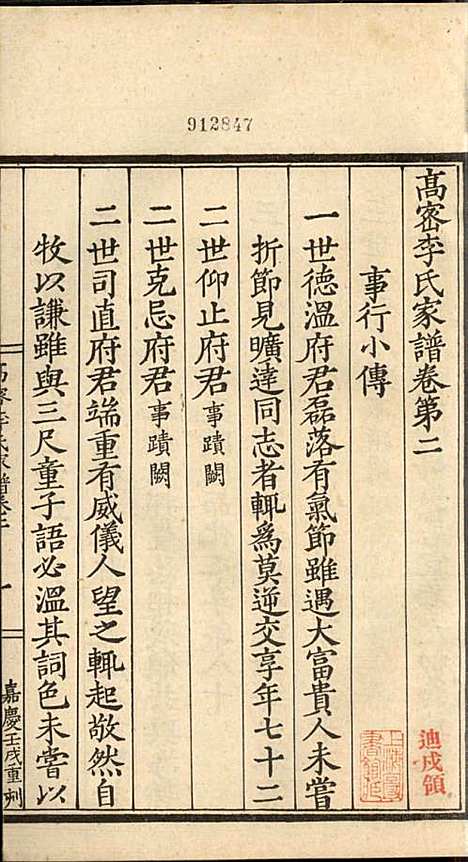 912847
高密李氏家譜卷第二
迪戎領
事行小傳
一世德溫府君磊落有氣節雖遇大富貴人未嘗
折節見曠達同志者輒為莫逆交享年七十二
二世仰止府君事蹟闕
二世克忌府君事蹟闕
二世司直府君端重有威儀人望之輒起敬然自
牧以謙雖與三尺童子語必溫其詞色未嘗以
嘉慶壬戌重刋